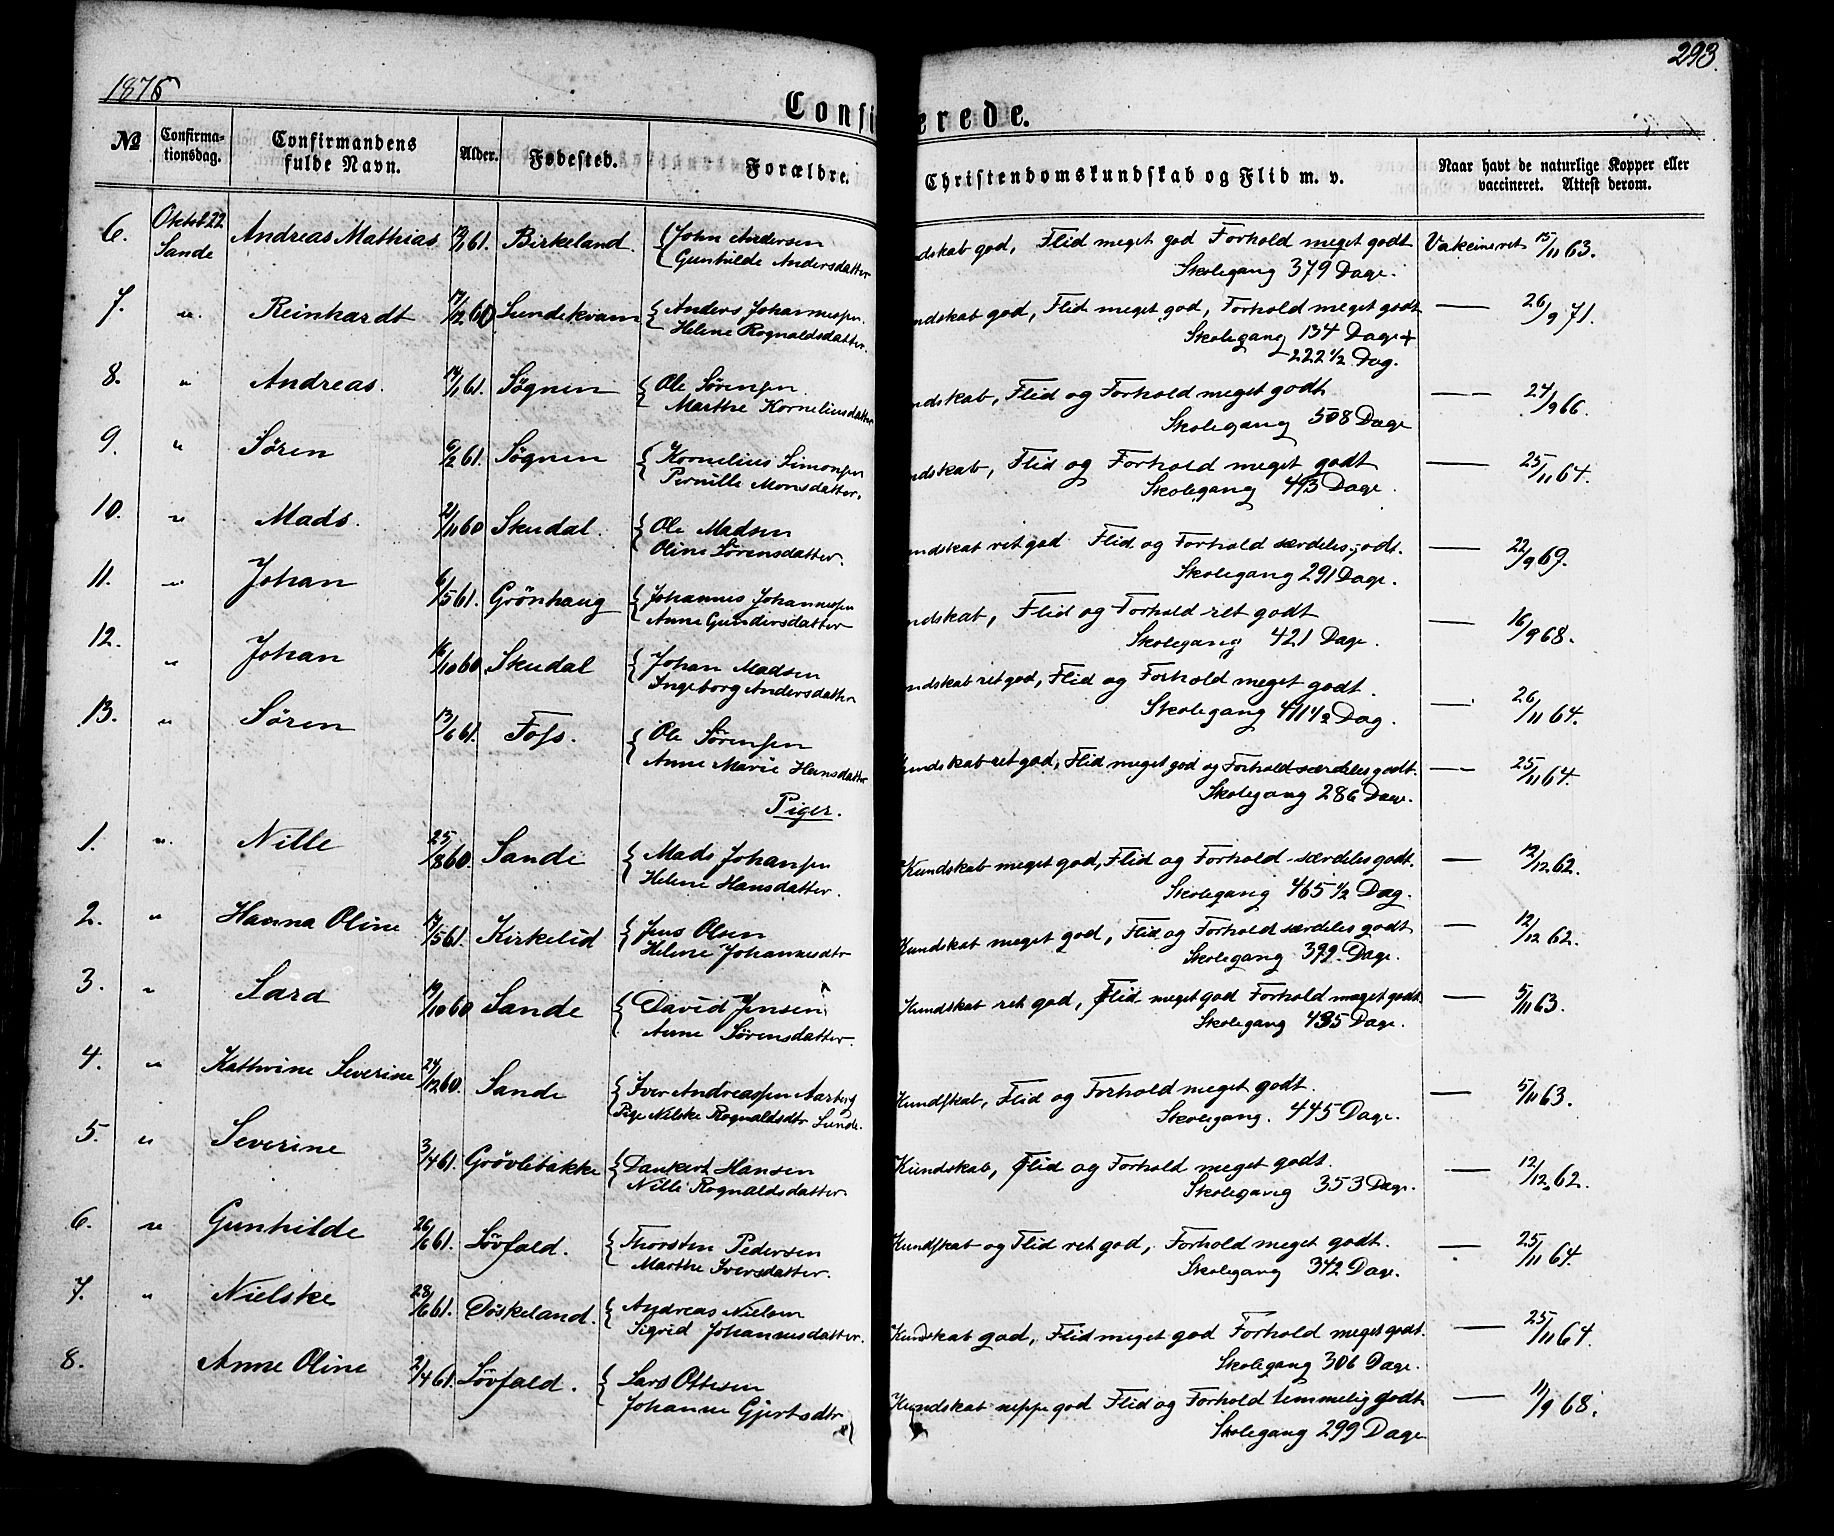 1875
293.
Confi
erede.
No
Confirma-
tionsdag.
Confirmandens
fulde Navn.
Alder.
Fødested.
Forældre.
Christendomskundskab og Flid m. v.
Naar havt de naturlige Kopper eller
vaccineret. Attest derom.
6. Oktob 22 Sande Andreas Mathias 61. Birkeland. { John Andersen
Gunhilde Andersdatter
ndskab god, Flid meget god Forhold meget godt Vakcineret 15/11 63.
Skolegang 379 Dage.
7. " Reinhardt 17/12 60 Sundekvam { Anders Johannessen.
Helene Rognaldsdatter.
ndskab god, Flid meget god, Forhold meget godt — 26/9 71.
Skolegang 134 Dage +
222 1/2 Dag.
8. " Andreas. 14/1 61. Søgnen { Ole Sørensen
Marthe Korneliusdatter
ndskab, Flid og Forhold meget godt — 24/9 66.
Skolegang 508 Dage
9. " Søren 6/2 61. Søgnen { Kornelius Simonsen
Pernille Monsdatter.
ndskab, Flid og Forhold meget godt — 25/11 64.
Skolegang 493 Dage.
10. " Mads. 2/11 60 Skudal. { Ole Madsen
Oline Sørensdatter.
ndskab ret god Flid og Forhold særdeles godt. — 22/9 69.
Skolegang 291 Dage.
11. " Johan 6/5 61. Grönhaug { Johannes Johannessen
Anne Gundersdatter
ndskab, Flid og Forhold ret godt — 16/9 68.
Skolegang 421 Dage.
12. " Johan 16/10 60 Skudal { Johan Madsen
Ingeborg Andersdatter
ndskab ret god, Flid og Forhold meget godt. — 26/11 64.
Skolegang 411 1/2 Dag.
13. " Søren 13/6 61. Foss. { Ole Sørensen
Anne Marie Hansdatter
Kundskab ret god, Flid meget god og Forhold særdeles godt. — 25/11 64.
Skolegang 286 Dage.
Piger.
1. " Nille 25/8 60. Sande { Mads Johansen
Helene Hansdatter.
Kundskab meget god, Flid og Forhold særdeles godt. — 12/12 62.
Skolegang 465 1/2 Dag.
2. " Hanna Oline 17/5 61. Kirkelid { Jens Olsen
Helene Johannesdtr
Kundskab meget god, Flid og Forhold særdeles godt — 12/12 62.
Skolegang 399. Dage.
3. " Lard 19/10 60 Sande { David Jensen
Anne Sørensdatter.
Kundskab ret god, Flid meget god Forhold meget godt. — 5/11 63.
Skolegang 435 Dage.
4. " Kathrine Severine 24/12 60. Sande { Iver Andreassen Aarberg
Pige Nilske Rognaldsdtr Sunde.
Kundskab, Flid og Forhold meget godt. — 5/11 63.
Skolegang. 445 Dage.
5. " Severine 3/4 61. Grøvlebakke { Dankert Hansen
Nille Rognaldsdatter
Kundskab, Flid og Forhold meget godt. — 12/12 62.
Skolegang 353 Dage.
6. " Gunhilde 26/6 61. Løvfald. { Thorsten Pedersen
Marthe Iversdatter.
Kundskab og Flid ret god, Forhold meget godt. — 25/11 64.
Skolegang 342 Dage.
7. " Nielske 28/6 61. Døskeland. { Andreas Nielsen
Sigrid Johannesdatter.
Kundskab god, Flid meget god Forhold meget godt. — 25/11 64.
Skolegang 306 Dage.
8. Anne Oline 2/4 61. Løvfald. { Lars Ottesen
Johanne Gjertsdtr
Kundskab neppe god Flid og Forhold temmelig godt — 11/9 68.
Skolegang 299 Dage